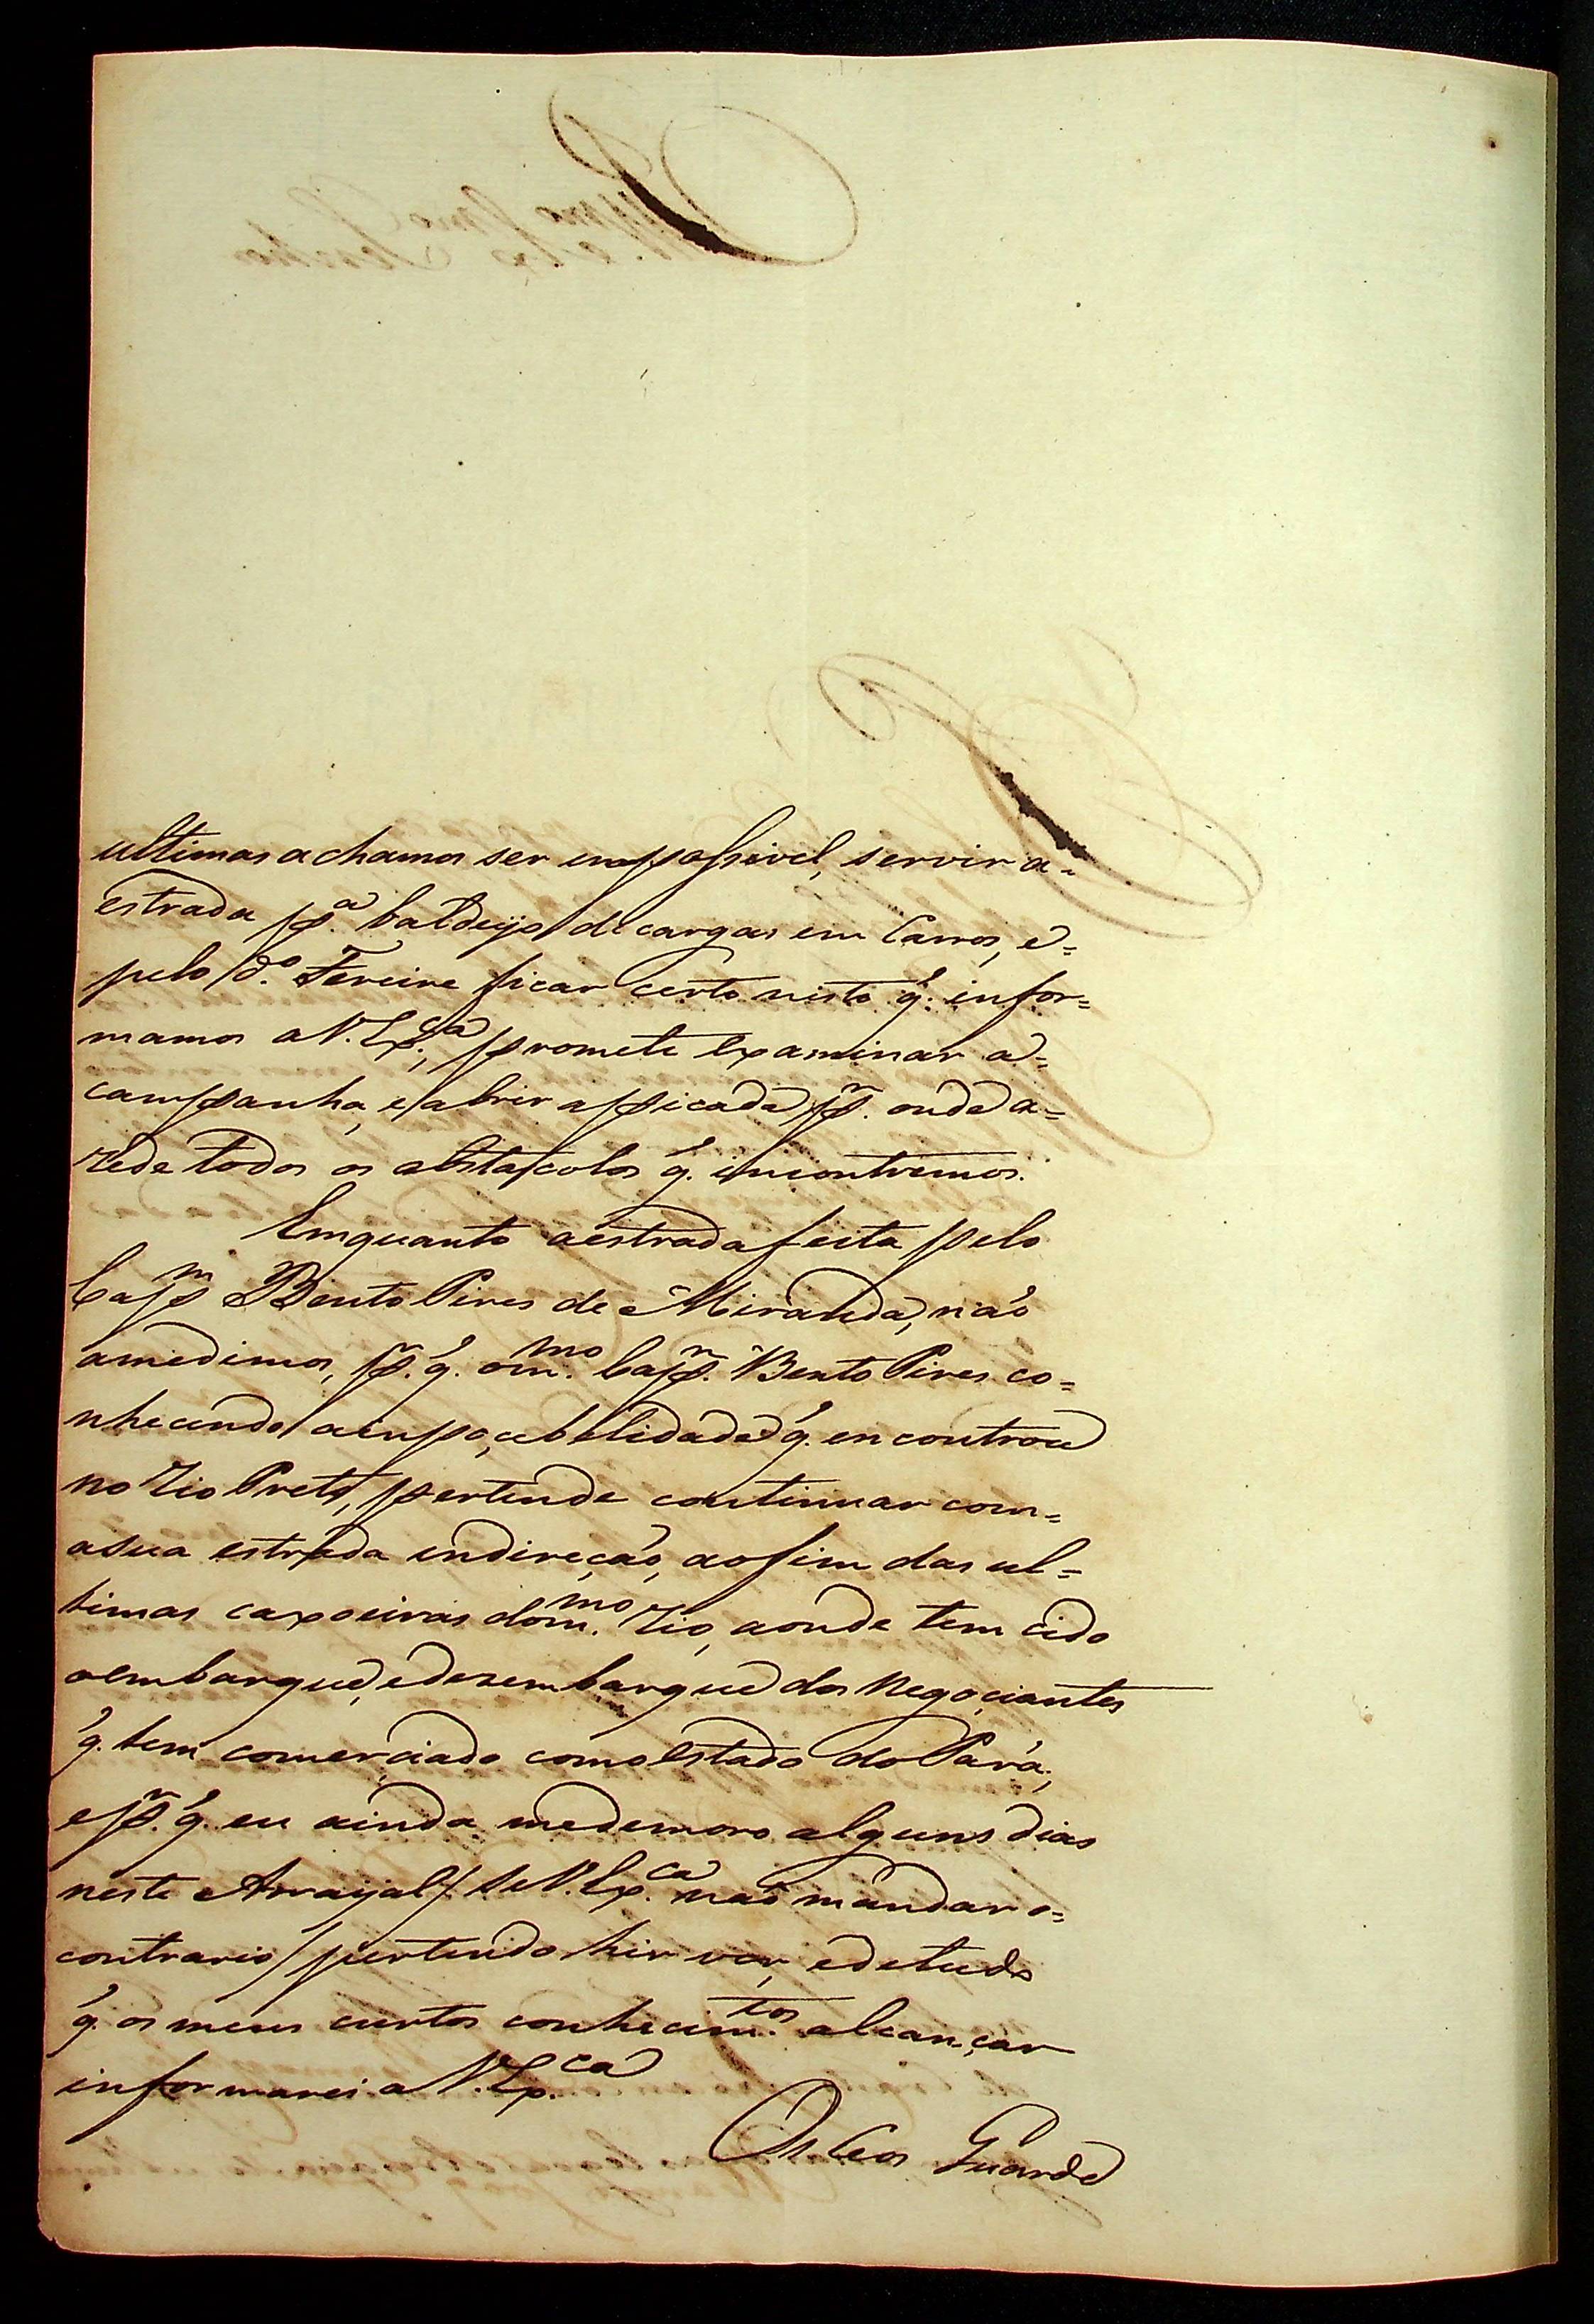 ultimas achamos ser impossivel, servir a=
estrada p.ª baldeijo de cargas em Carros, e=
pelo d.º Fereire ficar certo nisto q̃. infor=
mamos a V. Ex.cia, promete examinar a=
campanha, e abrir a picada p.r onde a=
rede todos os abstacolos q̃. incontremos.
Emquanto a estrada feita pelo
Cap.m Bento Pires de Miranda, não
a medimos, p.r q̃. o m.mo Cap.m Bento Pires co=
nhecendo a inpocebelidade q̃. encontrou
no Rio Preto, pertende continuar com=
a sua estrada indireção, ao fim das ul=
timas caxoeiras do m.mo Rio, aonde tem cido
o embarque, e desembarque dos Negociantes
q̃. tem comerciado com o Estado do Pará;
e p.r q̃. eu ainda me demoro alguns dias
neste Arraijal / se V. Ex.ca não mandar o=
contrario / pertendo hir ver, e de tudo
q̃. os meus curtos conhecim.tos alcançar
informarei a V. Ex.ca
Os Ceos Guarde